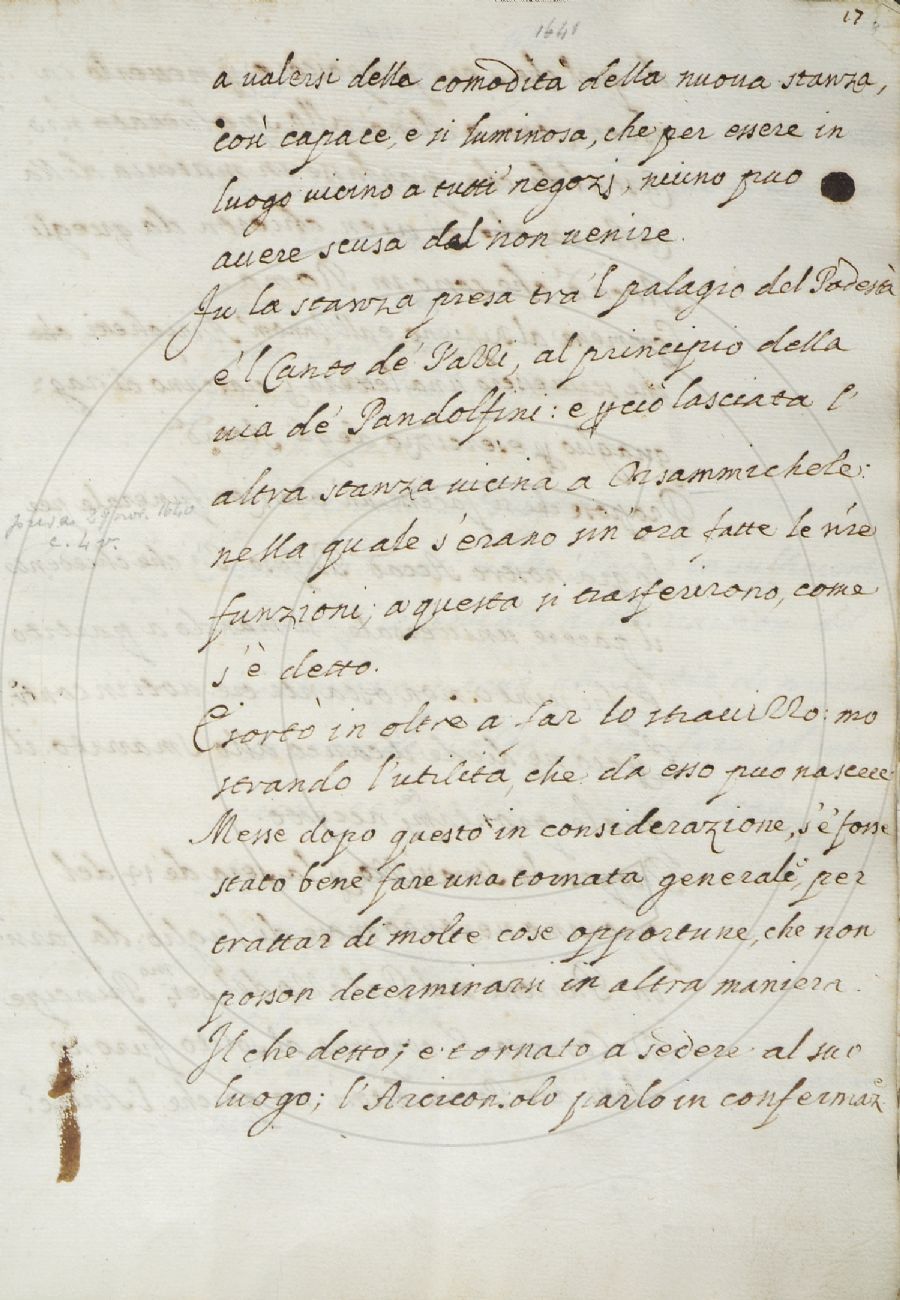 17
1641
a valersi della comodità della nuova stanza,
così capace, e sì luminosa, che per essere in
luogo vicino a tutti negozj, niuno può
avere scusa del non venire.
Fu la stanza presa tra 'l palagio del Podestà
e 'l Canto de' Pazzi, al principio della
via de' Pandolfini: e p ciò lasciata l'
altra stanza vicina a Orsammichele:
nella quale s'erano sin ora fatte le nre
funzioni; a questa si trasferirono, come
s'è detto.
Esortò in oltre a far lo stravizzo: mo
strando l'utilità, che da esso può nascere
Messe dopo questo in considerazione, s'e' fosse
stato bene fare una tornata generale, per
trattar di molte cose opportune, che non
posson determinarsi in altra maniera.
Il che detto; e tornato a sedere al suo
luogo; l'Arciconsolo parlò in confermaz.e
1640
c. 4 v.